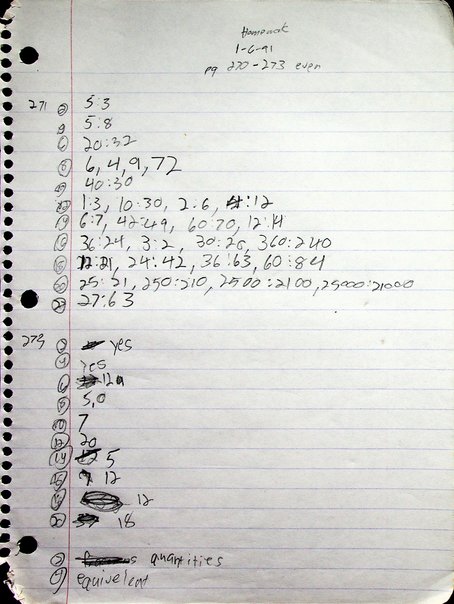 Homework
1-6-91
pg 270-273 even
271 2 5:3
4 5:8
6 20:32
8 6,4,9,72
10 40:30
12 1:3, 10:30, 2:6, 4:12
14 6:7, 42:49, 60:70, 12:14
16 36:24, 3:2, 30:20, 360:240
18 12:21, 24:42, 36:63, 60:84
20 25:21, 250:210, 2500:2100, 25000:21000
22 27:63
273 2 yes
4 yes
6 12
8 5,0
10 7
12 20
14 5
16 12
18 12
20 18
2 quantities
4 equivelent